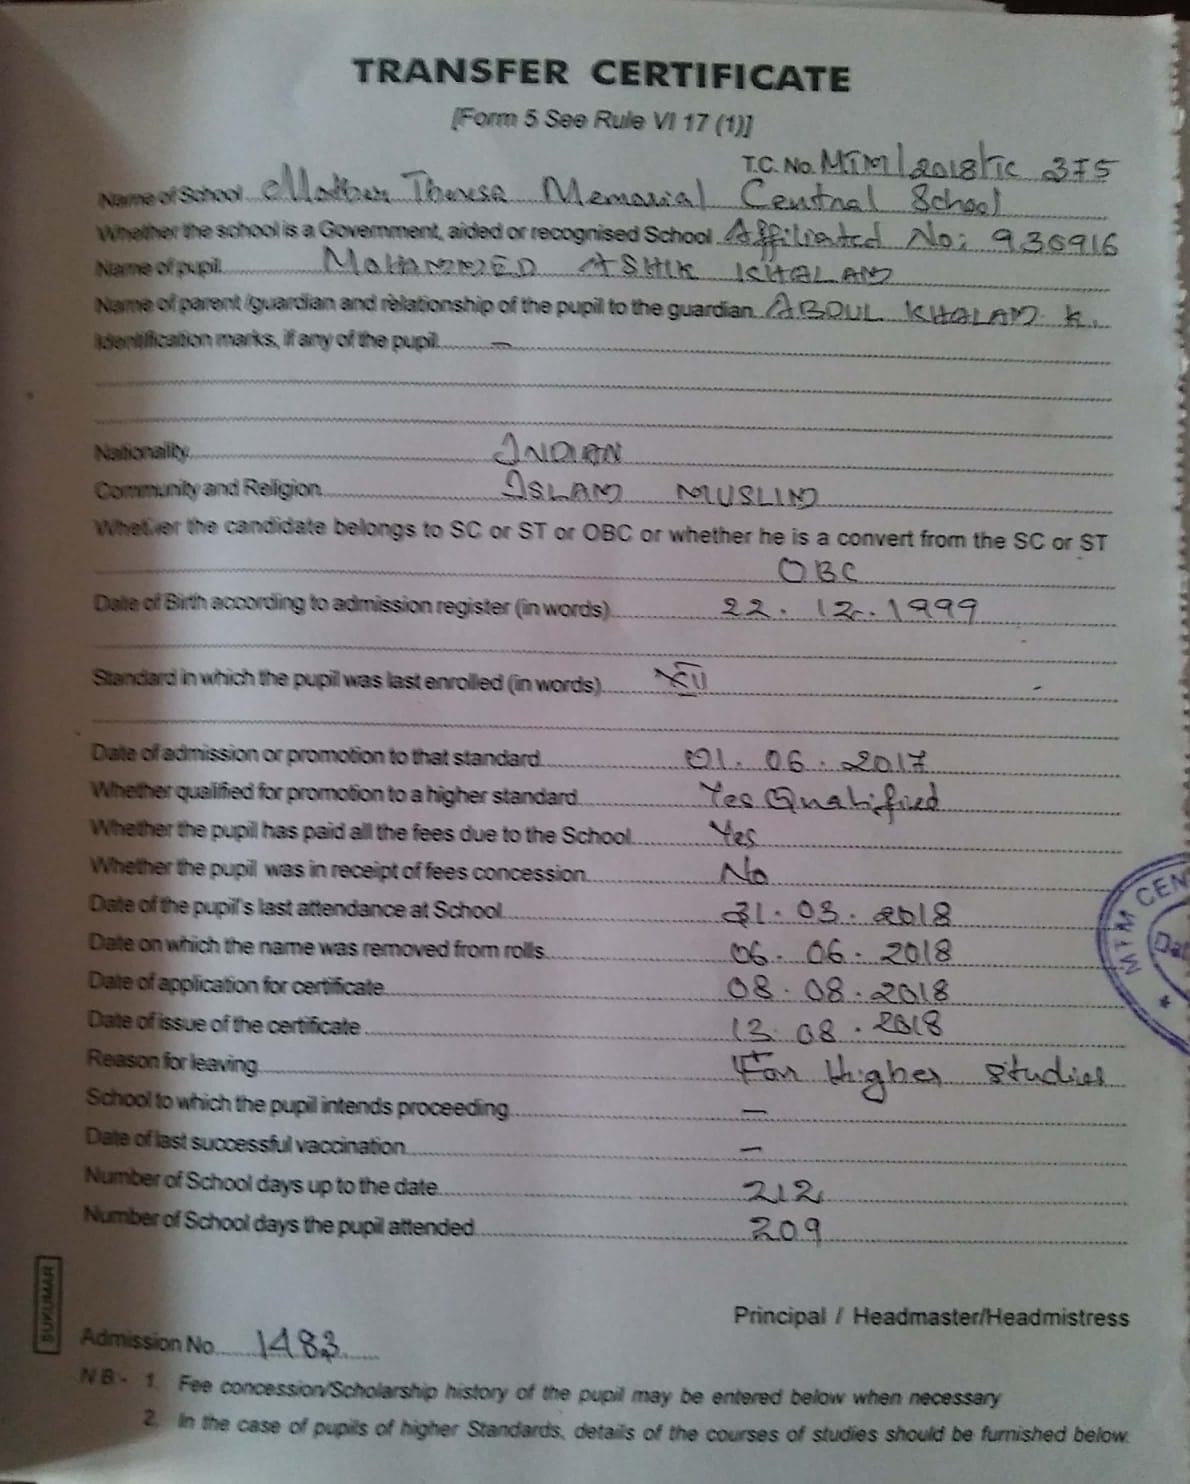 TRANSFER CERTIFICATE
[Form 5 See Rule VI 17 (1)]
T.C. No. MTM/2018/TC 375
Name of School Mother Theresa Memorial Central School
Whether the school is a Government, aided or recognised School Affiliated No: 930916
Name of pupil MOHAMMED ASHIK KHALAM
Name of parent /guardian and relationship of the pupil to the guardian ABDUL KHALAM K.
Identification marks, if any of the pupil —
Nationality INDIAN
Community and Religion ISLAM MUSLIM
Whether the candidate belongs to SC or ST or OBC or whether he is a convert from the SC or ST
OBC
Date of Birth according to admission register (in words) 22.12.1999
Standard in which the pupil was last enrolled (in words) XII
Date of admission or promotion to that standard 01.06.2017
Whether qualified for promotion to a higher standard Yes Qualified
Whether the pupil has paid all the fees due to the School Yes
Whether the pupil was in receipt of fees concession No
Date of the pupil's last attendance at School 31.03.2018
Date on which the name was removed from rolls 06.06.2018
Date of application for certificate 08.08.2018
Date of issue of the certificate 13.08.2018
Reason for leaving For Higher studies
School to which the pupil intends proceeding —
Date of last successful vaccination —
Number of School days up to the date 212
Number of School days the pupil attended 209
MTM CEN
SUKUMAR
Principal / Headmaster/Headmistress
Admission No 1483
N B:- 1. Fee concession/Scholarship history of the pupil may be entered below when necessary
2. In the case of pupils of higher Standards, details of the courses of studies should be furnished below.